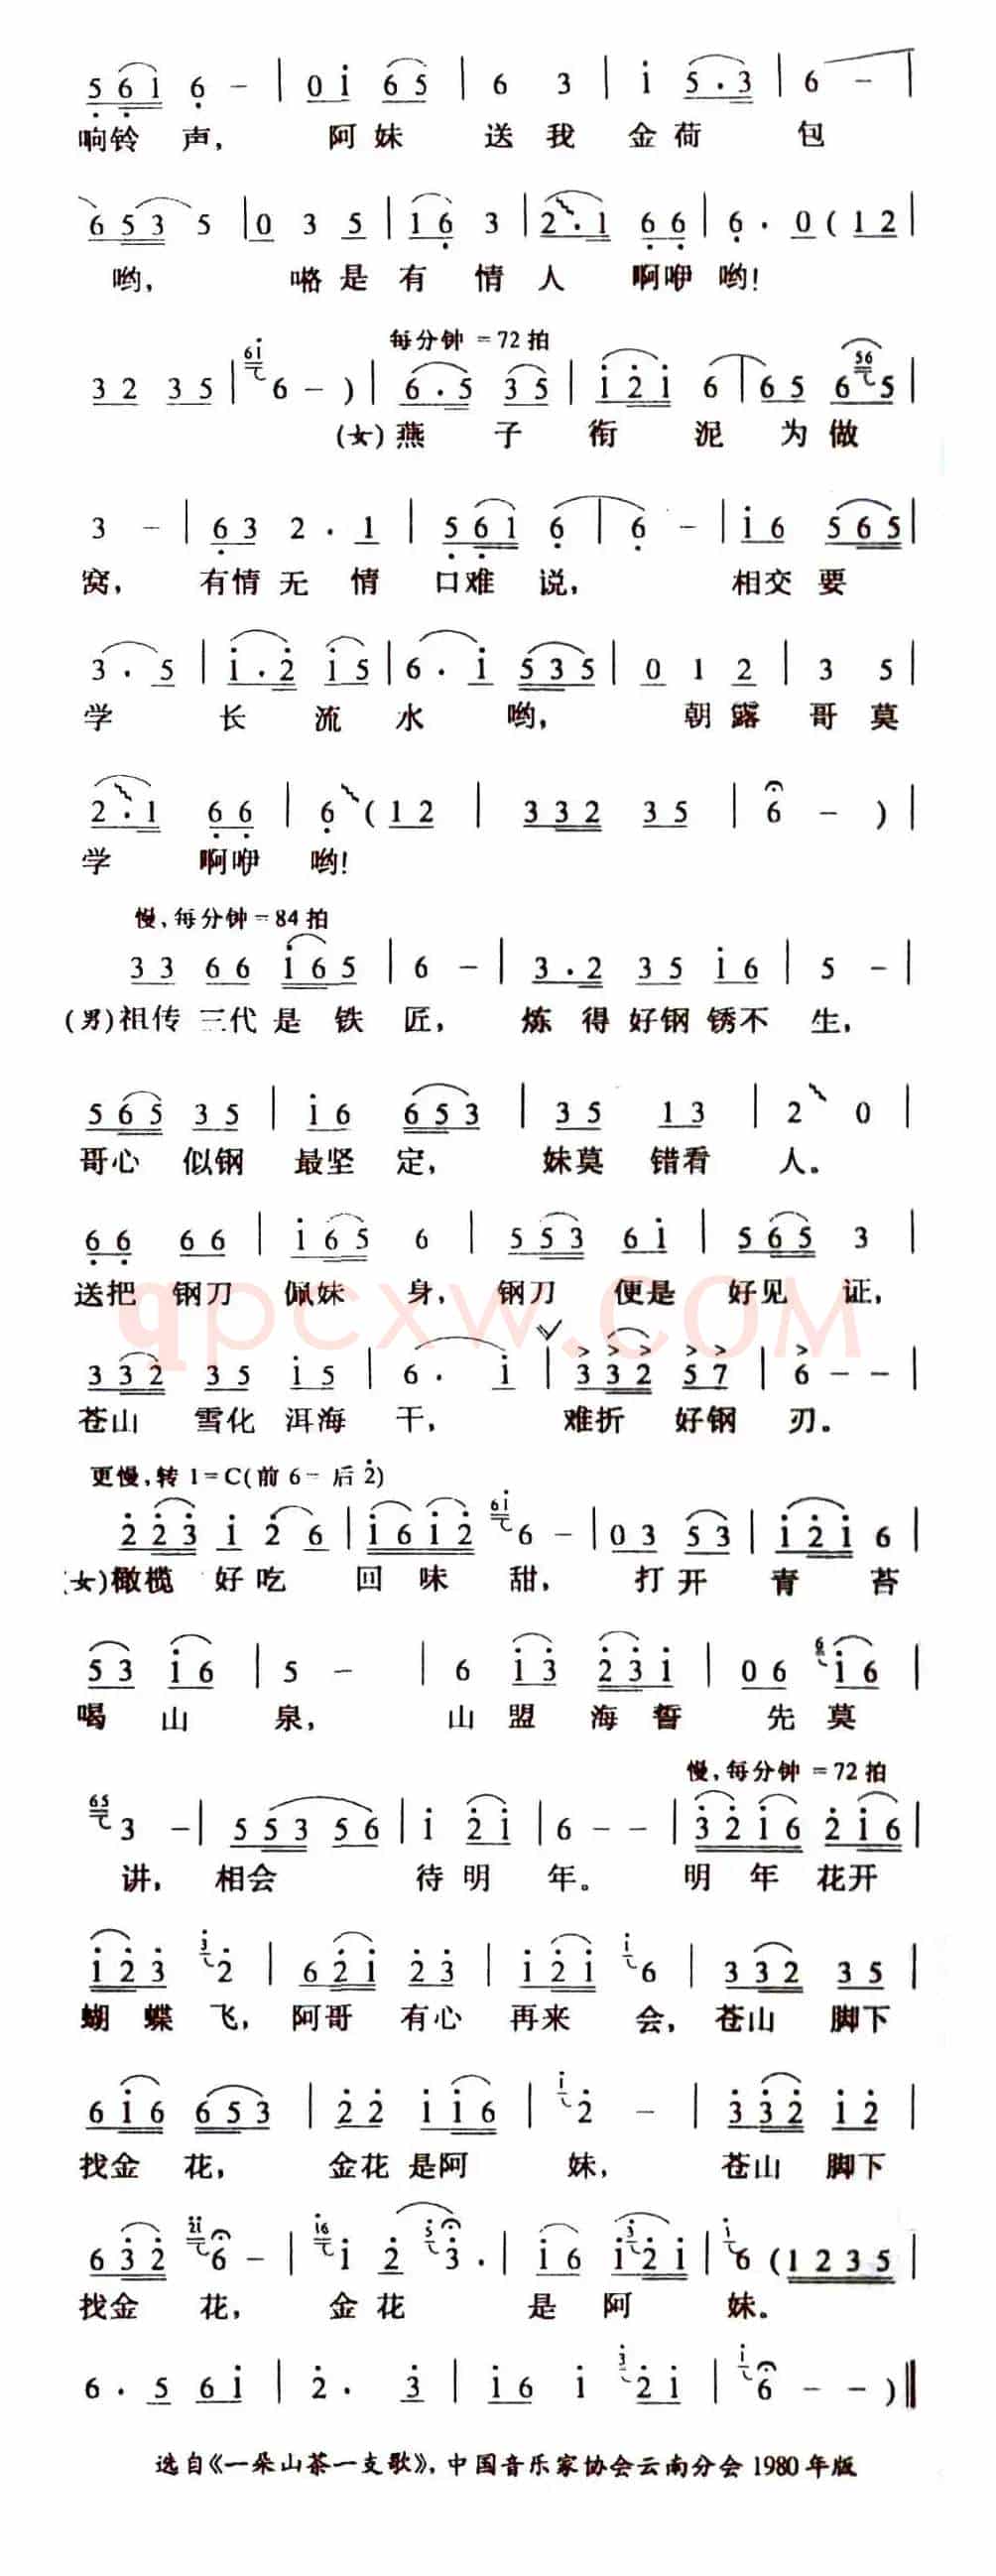 5 6 1 6 - | 0 1 6 5 | 6 3 | 1 5 . 3 | 6 - |
响铃 声, 阿 妹 送 我 金 荷 包
6 5 3 5 | 0 3 5 | 1 6 3 | 2 . 1 6 6 | 6 . 0 ( 1 2 |
哟, 咯 是 有 情 人 啊咿 哟!
每分钟 =72 拍
3 2 3 5 | 6 1 6 - ) | 6 . 5 3 5 | 1 2 1 6 | 6 5 6 56 5 |
(女) 燕 子 衔 泥 为 做
3 - | 6 3 2 . 1 | 5 6 1 6 | 6 - | 1 6 5 6 5 |
窝, 有情 无 情 口难 说, 相交 要
3 . 5 | 1 . 2 1 5 | 6 . 1 5 3 5 | 0 1 2 | 3 5 |
学 长 流 水 哟, 朝 露 哥 莫
2 . 1 6 6 | 6 ( 1 2 | 3 3 2 3 5 | 6 - ) |
学 啊咿 哟!
慢,每分钟=84 拍
3 3 6 6 1 6 5 | 6 - | 3 . 2 3 5 1 6 | 5 - |
(男)祖传 三代 是 铁 匠, 炼 得 好钢 锈不 生,
5 6 5 3 5 | 1 6 6 5 3 | 3 5 1 3 | 2 0 |
哥心 似钢 最坚 定, 妹莫 错看 人。
6 6 6 6 | 1 6 5 6 | 5 5 3 6 1 | 5 6 5 3 |
送把 钢刀 佩妹 身, 钢刀 便是 好见 证,
qpcxw.COM
3 3 2 3 5 1 5 | 6 . 1 | 3 3 2 5 7 | 6 - - |
苍山 雪化 洱海 干, 难折 好钢 刃。
更慢,转 1=C(前 6= 后 2)
2 2 3 1 2 6 | 1 6 1 2 6 1 6 - | 0 3 5 3 | 1 2 1 6 |
(女)橄榄 好吃 回 味 甜, 打 开 青 苔
5 3 1 6 | 5 - | 6 1 3 2 3 1 | 0 6 6 1 6 |
喝 山 泉, 山 盟 海 誓 先 莫
慢,每分钟 =72 拍
65 3 - | 5 5 3 5 6 | 1 2 1 | 6 - - | 3 2 1 6 2 1 6 |
讲, 相会 待 明 年。 明 年 花开
1 2 3 3 2 | 6 2 1 2 3 | 1 2 1 1 6 | 3 3 2 3 5 |
蝴 蝶 飞, 阿哥 有心 再来 会, 苍山 脚下
6 1 6 6 5 3 | 2 2 1 1 6 | 1 2 - | 3 3 2 1 2 |
找金 花, 金花 是阿 妹, 苍山 脚下
6 3 2 21 6 - | 16 1 2 5 3 . | 1 6 1 3 2 1 | 1 6 ( 1 2 3 5 |
找金 花, 金 花 是 阿 妹。
6 . 5 6 1 | 2 . 3 | 1 6 1 3 2 1 | 1 6 - - ) ‖
选自《一朵山茶一支歌》,中国音乐家协会云南分会 1980 年版